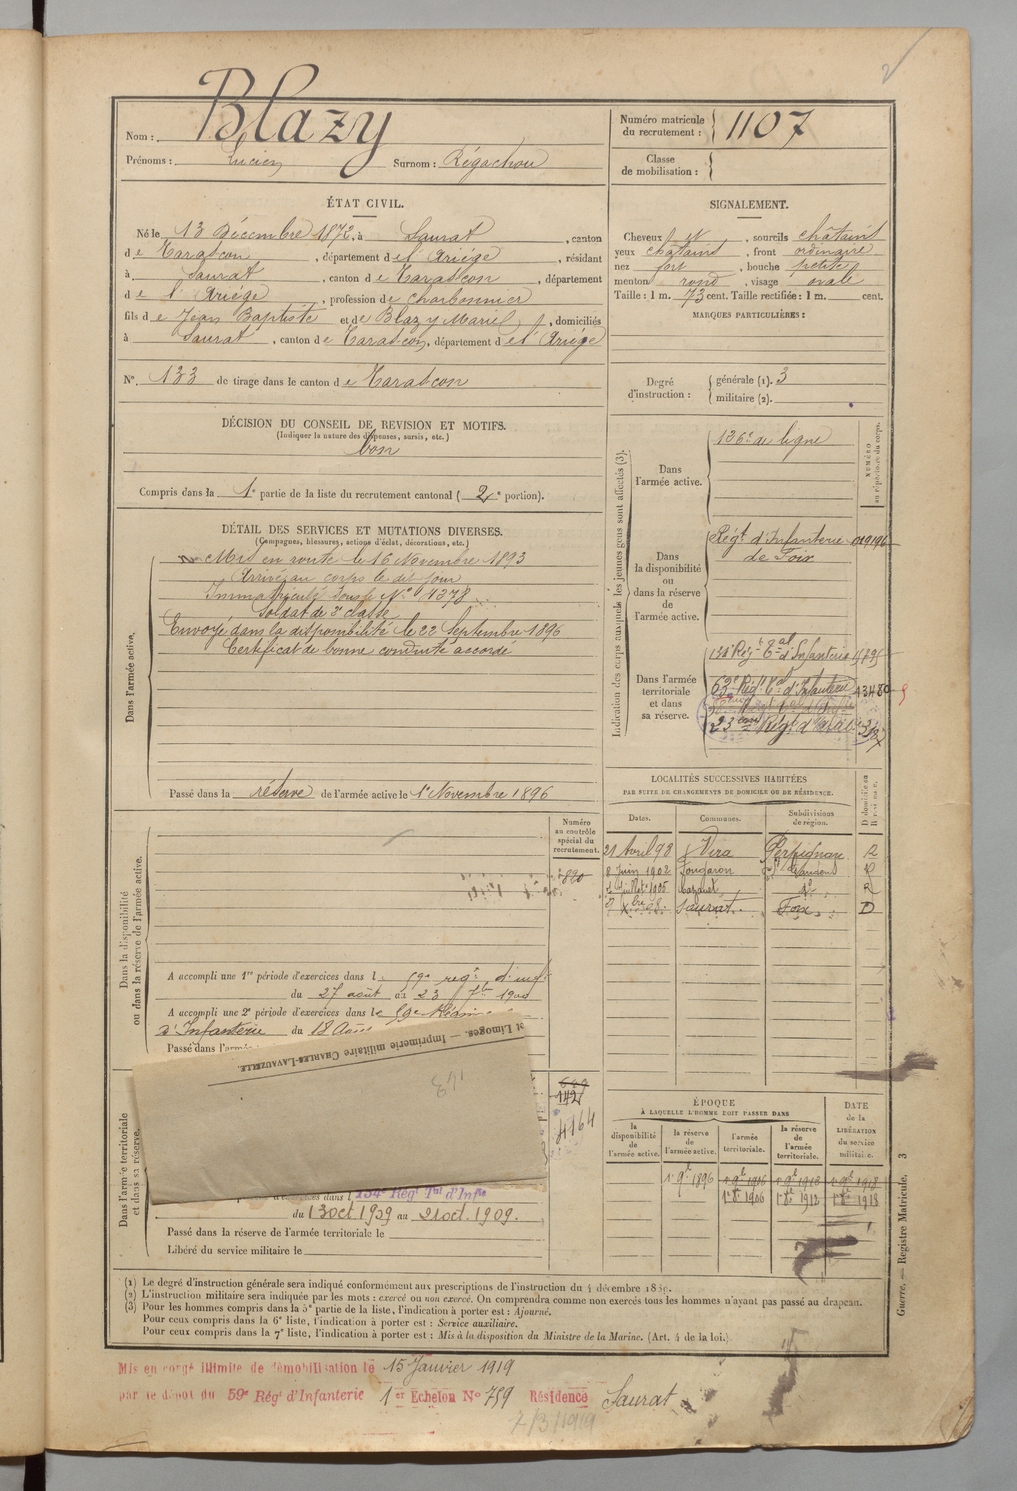 Nom : Blazy
Prénoms : Lucien Surnom : Régachou
Numéro matricule du recrutement : 1107
Classe de mobilisation :
ÉTAT CIVIL.
Né le 13 Décembre 1872, à Saurat, canton
de Tarascon, département de l'Ariége, résidant
à Saurat, canton de Tarascon, département
de l'Ariége, profession de charbonnier
fils de Jean Baptiste et de Blazy Marie, domiciliés
à Saurat, canton de Tarascon, département de l'Ariége
N° 133 de tirage dans le canton de Tarascon
SIGNALEMENT.
Cheveux et, sourcils châtains
yeux châtains, front ordinaire
nez fort, bouche petite
menton rond, visage ovale
Taille : 1 m. 73 cent. Taille rectifiée : 1 m. cent.
MARQUES PARTICULIÈRES :
Degré d'instruction : générale (1). 3
militaire (2).
DÉCISION DU CONSEIL DE REVISION ET MOTIFS.
(Indiquer la nature des dispenses, sursis, etc.)
bon
Compris dans la 1e partie de la liste du recrutement cantonal (2e portion).
DÉTAIL DES SERVICES ET MUTATIONS DIVERSES.
(Campagnes, blessures, actions d'éclat, décorations, etc.)
Dans l'armée active.
Mis en route le 16 Novembre 1893
Arrivé au corps le dit jour
Immatriculé sous le N° 4378
Soldat de 2e classe
Envoyé dans la disponibilité le 22 Septembre 1896
Certificat de bonne conduite accordé
Passé dans la réserve de l'armée active le 1er Novembre 1896
Indication des corps auxquels les jeunes gens sont affectés (3).
NUMÉRO au répertoire du corps.
Dans l'armée active.
136e de ligne
Dans la disponibilité ou dans la réserve de l'armée active.
Régt d'Infanterie
de Foix
Dans l'armée territoriale et dans sa réserve.
Régt Tal d'Infanterie
63e Régt Tal d'Infanterie
LOCALITÉS SUCCESSIVES HABITÉES
PAR SUITE DE CHANGEMENTS DE DOMICILE OU DE RÉSIDENCE.
Dates. Communes. Subdivisions de région. D domicile ou R résidence.
21 Avril 98 Vira Perpignan R
8 Juin 1902 Fougaron St Gaudens R
Juillet 1905 dt R
Xbre 08 Saurat Foix D
Dans la disponibilité ou dans la réserve de l'armée active.
Numéro au contrôle spécial du recrutement.
A accompli une 1re période d'exercices dans le 59e regt d'inf
du 27 août au 23 7bre 1900
A accompli une 2e période d'exercices dans le 59e
d'Infanterie du 18 Août
Passé dans l'armée
st Limoges. — Imprimerie militaire CHARLES-LAVAUZELLE.
143
Dans l'armée territoriale et dans sa réserve.
142
4164
134e Régt Tal d'Infie
du 13 oct 1909 au 21 oct. 1909.
Passé dans la réserve de l'armée territoriale le
Libéré du service militaire le
ÉPOQUE
À LAQUELLE L'HOMME DOIT PASSER DANS
la disponibilité de l'armée active.
la réserve de l'armée active.
l'armée territoriale.
la réserve de l'armée territoriale.
DATE de la LIBÉRATION du service militaire.
1er 9bre 1896
1906 1912 1918
Guerre. — Registre Matricule. 3
(1) Le degré d'instruction générale sera indiqué conformément aux prescriptions de l'instruction du 4 décembre 1889.
(2) L'instruction militaire sera indiquée par les mots : exercé ou non exercé. On comprendra comme non exercés tous les hommes n'ayant pas passé au drapeau.
(3) Pour les hommes compris dans la 5e partie de la liste, l'indication à porter est : Ajourné.
Pour ceux compris dans la 6e liste, l'indication à porter est : Service auxiliaire.
Pour ceux compris dans la 7e liste, l'indication à porter est : Mis à la disposition du Ministre de la Marine. (Art. 4 de la loi.)
Mis en congé illimité de démobilisation le 15 Janvier 1919
par le dépôt du 59e Régt d'Infanterie 1er Echelon N° 759 Résidence Saurat
7/3/1919